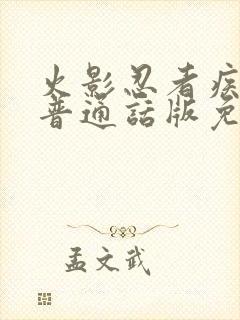 火影忍者疾
普通話版免
孟文武